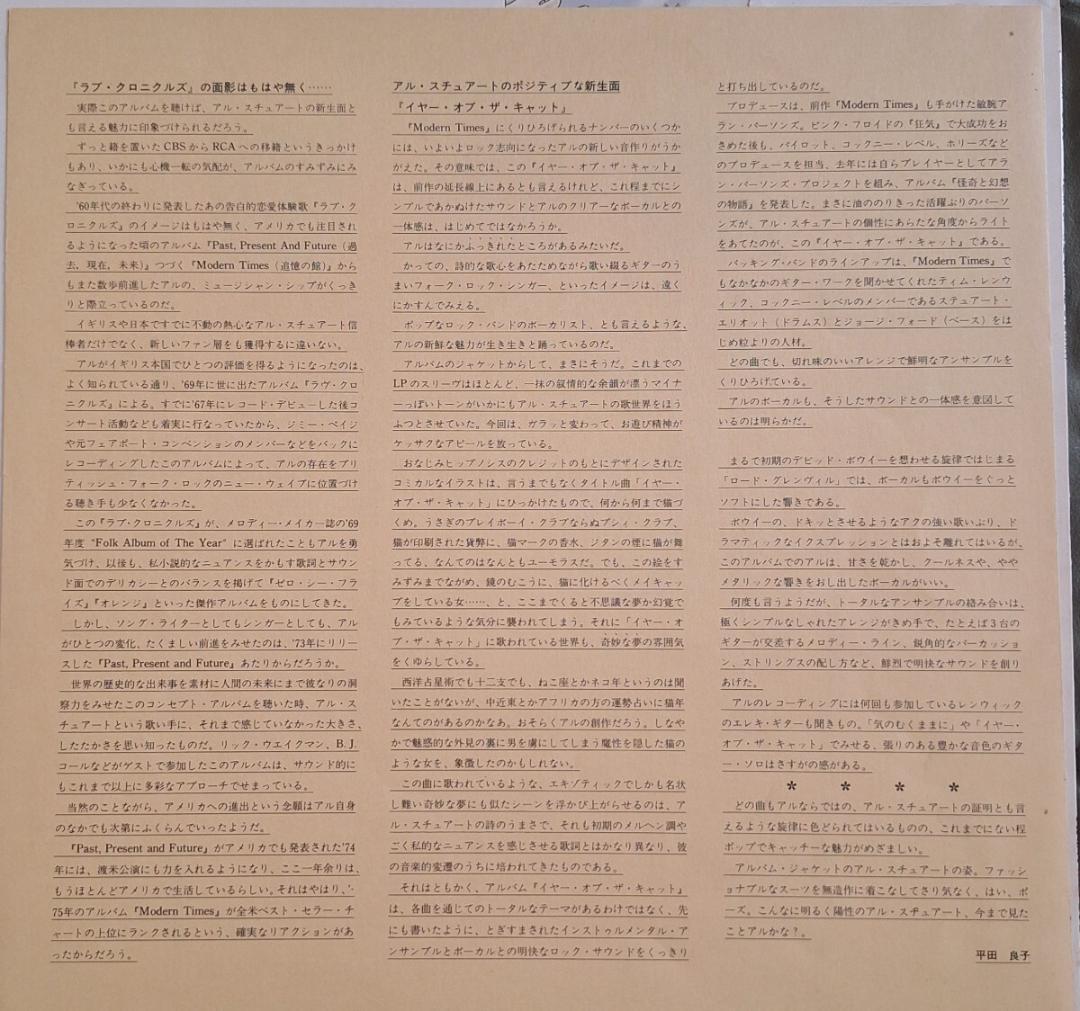 『ラブ・クロニクルズ』の面影はもはや無く……
実際このアルバムを聴けば、アル・スチュアートの新生面と
も言える魅力に印象づけられるだろう。
ずっと籍を置いたCBSからRCAへの移籍というきっかけ
もあり、いかにも心機一転の気配が、アルバムのすみずみにみ
なぎっている。
'60年代の終わりに発表したあの告白的恋愛体験歌『ラブ・ク
ロニクルズ』のイメージはもはや無く、アメリカでも注目され
るようになった頃のアルバム『Past, Present And Future（過
去，現在，未来）』つづく『Modern Times（追憶の館）』から
もまた数歩前進したアルの、ミュージシャン・シップがくっき
りと際立っているのだ。
イギリスや日本ですでに不動の熱心なアル・スチュアート信
棒者だけでなく、新しいファン層をも獲得するに違いない。
アルがイギリス本国でひとつの評価を得るようになったのは、
よく知られている通り、'69年に世に出たアルバム『ラヴ・クロ
ニクルズ』による。すでに'67年にレコード・デビューした後コ
ンサート活動なども着実に行なっていたから、ジミー・ペイジ
や元フェアポート・コンベンションのメンバーなどをバックに
レコーディングしたこのアルバムによって、アルの存在をブリ
ティッシュ・フォーク・ロックのニュー・ウェイブに位置づけ
る聴き手も少なくなかった。
この『ラブ・クロニクルズ』が、メロディー・メイカー誌の'69
年度 "Folk Album of The Year" に選ばれたこともアルを勇
気づけ、以後も、私小説的なニュアンスをかもす歌詞とサウン
ド面でのデリカシーとのバランスを掲げて『ゼロ・シー・フラ
イズ』『オレンジ』といった傑作アルバムをものにしてきた。
しかし、ソング・ライターとしてもシンガーとしても、アル
がひとつの変化、たくましい前進をみせたのは、'73年にリリー
スした『Past, Present and Future』あたりからだろうか。
世界の歴史的な出来事を素材に人間の未来にまで彼なりの洞
察力をみせたこのコンセプト・アルバムを聴いた時、アル・ス
チュアートという歌い手に、それまで感じていなかった大きさ、
したたかさを思い知ったものだ。リック・ウエイクマン、B.J.
コールなどがゲストで参加したこのアルバムは、サウンド的に
もこれまで以上に多彩なアプローチでせまっている。
当然のことながら、アメリカへの進出という念願はアル自身
のなかでも次第にふくらんでいったようだ。
『Past, Present and Future』がアメリカでも発表された'74
年には、渡米公演にも力を入れるようになり、ここ一年余りは、
もうほとんどアメリカで生活しているらしい。それはやはり、'-
75年のアルバム『Modern Times』が全米ベスト・セラー・チ
ャートの上位にランクされるという、確実なリアクションがあ
ったからだろう。
アル・スチュアートのポジティブな新生面
『イヤー・オブ・ザ・キャット』
『Modern Times』にくりひろげられるナンバーのいくつか
には、いよいよロック志向になったアルの新しい音作りがうか
がえた。その意味では、この『イヤー・オブ・ザ・キャット』
は、前作の延長線上にあるとも言えるけれど、これ程までにシ
ンプルであかぬけたサウンドとアルのクリアーなボーカルとの
一体感は、はじめてではなかろうか。
アルはなにかふっきれたところがあるみたいだ。
かっての、詩的な歌心をあたためながら歌い綴るギターのう
まいフォーク・ロック・シンガー、といったイメージは、遠く
にかすんでみえる。
ポップなロック・バンドのボーカリスト、とも言えるような、
アルの新鮮な魅力が生き生きと踊っているのだ。
アルバムのジャケットからして、まさにそうだ。これまでの
LPのスリーヴはほとんど、一抹の叙情的な余韻が漂うマイナ
ーっぽいトーンがいかにもアル・スチュアートの歌世界をほう
ふつとさせていた。今回は、ガラッと変わって、お遊び精神が
ケッサクなアピールを放っている。
おなじみヒップノシスのクレジットのもとにデザインされた
コミカルなイラストは、言うまでもなくタイトル曲「イヤー・
オブ・ザ・キャット」にひっかけたもので、何から何まで猫づ
くめ。うさぎのプレイボーイ・クラブならぬプシィ・クラブ、
猫が印刷された貨幣に、猫マークの香水、ジタンの煙に猫が舞
ってる、なんてのはなんともユーモラスだ。でも、この絵をす
みずみまでながめ、鏡のむこうに、猫に化けるべくメイキャッ
プをしている女……、と、ここまでくると不思議な夢か幻覚で
もみているような気分に襲われてしまう。それに「イヤー・オ
ブ・ザ・キャット」に歌われている世界も、奇妙な夢の雰囲気
をくゆらしている。
西洋占星術でも十二支でも、ねこ座とかネコ年というのは聞
いたことがないが、中近東とかアフリカの方の運勢占いに猫年
なんてのがあるのかなあ。おそらくアルの創作だろう。しなや
かで魅惑的な外見の裏に男を虜にしてしまう魔性を隠した猫の
ような女を、象徴したのかもしれない。
この曲に歌われているような、エキゾティックでしかも名状
し難い奇妙な夢にも似たシーンを浮かび上がらせるのは、ア
ル・スチュアートの詩のうまさで、それも初期のメルヘン調や
ごく私的なニュアンスを感じさせる歌詞とはかなり異なり、彼
の音楽的変遷のうちに培われてきたものである。
それはともかく、アルバム『イヤー・オブ・ザ・キャット』
は、各曲を通じてのトータルなテーマがあるわけではなく、先
にも書いたように、とぎすまされたインストゥルメンタル・ア
ンサンブルとボーカルとの明快なロック・サウンドをくっきり
と打ち出しているのだ。
プロデュースは、前作『Modern Times』も手がけた敏腕ア
ラン・パーソンズ。ピンク・フロイドの『狂気』で大成功をお
さめた後も、パイロット、コックニー・レベル、ホリーズなど
のプロデュースを担当、去年には自らプレイヤーとしてアラ
ン・パーソンズ・プロジェクトを組み、アルバム『怪奇と幻想
の物語』を発表した。まさに油ののりきった活躍ぶりのパーソ
ンズが、アル・スチュアートの個性にあらたな角度からライト
をあてたのが、この『イヤー・オブ・ザ・キャット』である。
バッキング・バンドのラインアップは、『Modern Times』で
もなかなかのギター・ワークを聞かせてくれたティム・レンウ
ィック、コックニー・レベルのメンバーであるステュアート・
エリオット（ドラムス）とジョージ・フォード（ベース）をは
じめ粒よりの人材。
どの曲でも、切れ味のいいアレンジで鮮明なアンサンブルを
くりひろげている。
アルのボーカルも、そうしたサウンドとの一体感を意図して
いるのは明らかだ。
まるで初期のデビッド・ボウイーを想わせる旋律ではじまる
「ロード・グレンヴィル」では、ボーカルもボウイーをぐっと
ソフトにした響きである。
ボウイーの、ドキッとさせるようなアクの強い歌いぶり、ド
ラマティックなイクスプレッションとはおよそ離れてはいるが、
このアルバムでのアルは、甘さを乾かし、クールネスや、やや
メタリックな響きをおし出したボーカルがいい。
何度も言うようだが、トータルなアンサンブルの絡み合いは、
極くシンプルなしゃれたアレンジがきめ手で、たとえば3台の
ギターが交差するメロディー・ライン、鋭角的なパーカッショ
ン、ストリングスの配し方など、鮮烈で明快なサウンドを創り
あげた。
アルのレコーディングには何回も参加しているレンウィック
のエレキ・ギターも聞きもの。「気のむくままに」や「イヤー・
オブ・ザ・キャット」でみせる、張りのある豊かな音色のギタ
ー・ソロはさすがの感がある。
* * * *
どの曲もアルならではの、アル・スチュアートの証明とも言
えるような旋律に色どられてはいるものの、これまでにない程
ポップでキャッチーな魅力がめざましい。
アルバム・ジャケットのアル・スチュアートの姿。ファッシ
ョナブルなスーツを無造作に着こなしてさり気なく、はい、ポ
ーズ。こんなに明るく陽性のアル・スチュアート、今まで見た
ことアルかな？。
平田 良子